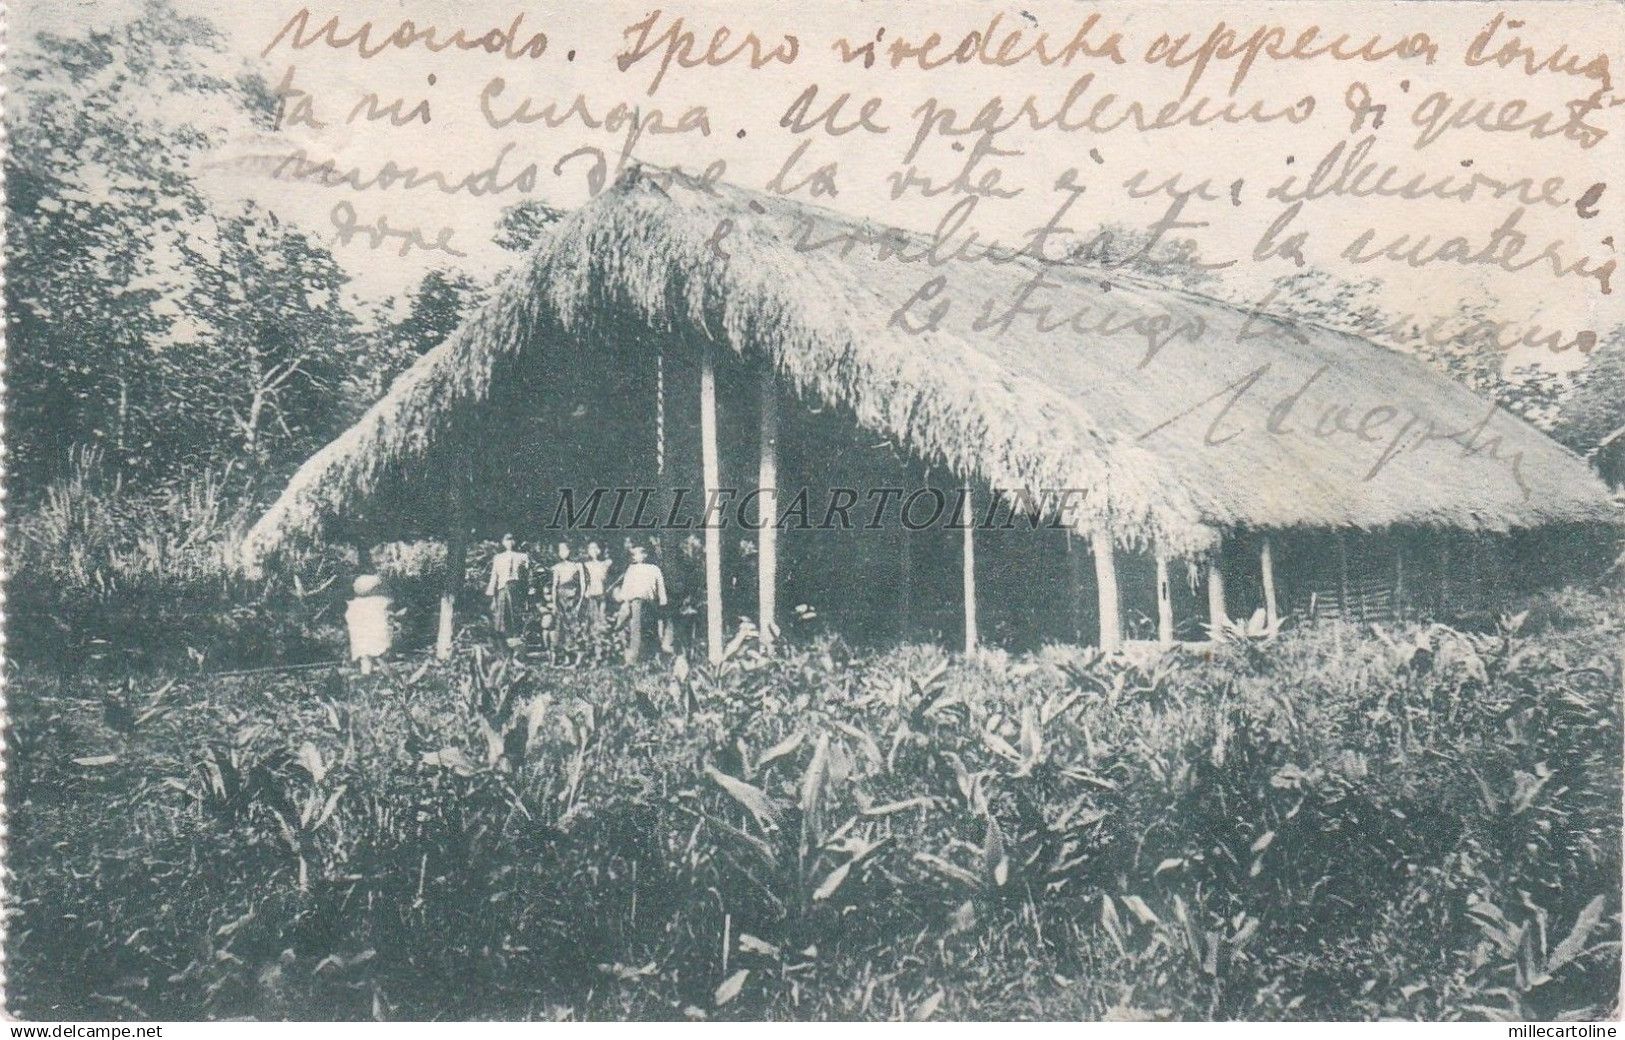 mondo. Spero rivederla appena torna
ta in Europa. Ne parleremo di questo
mondo dove la vita è un' illusione e
dove è svalutata la materia
Le stringo la mano
MILLECARTOLINE
www.delcampe.net
millecartoline